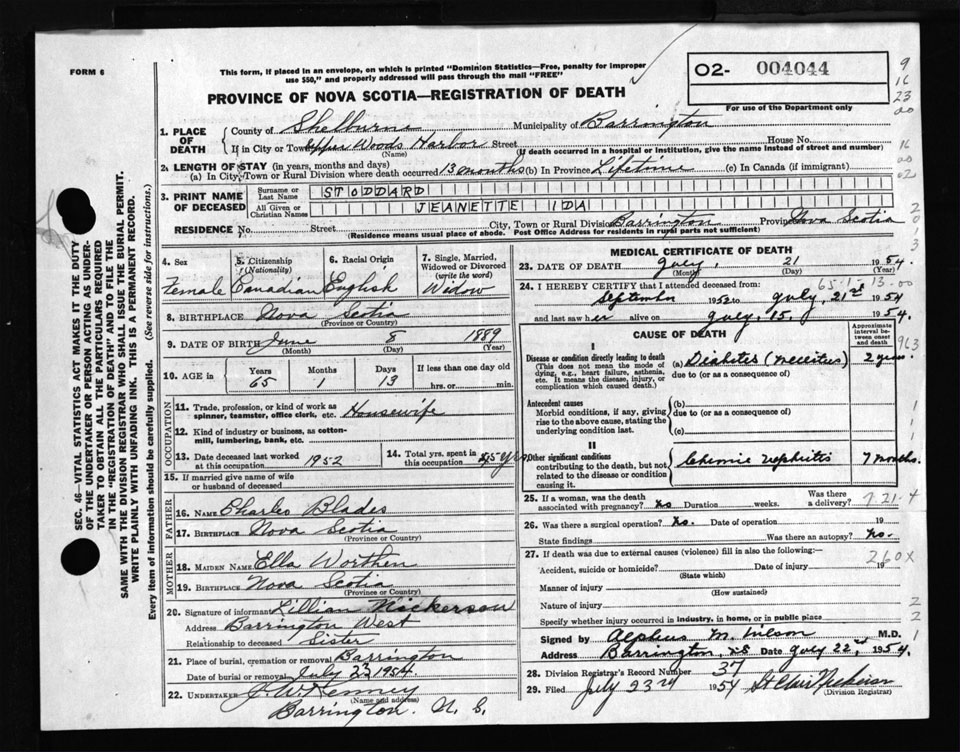 FORM 6
This form, if placed in an envelope, on which is printed "Dominion Statistics—Free, penalty for improper
use $50," and properly addressed will pass through the mail "FREE"
PROVINCE OF NOVA SCOTIA—REGISTRATION OF DEATH
02- 004044
For use of the Department only
9
16
23
20
1. PLACE OF DEATH
County of Shelburne Municipality of Barrington
If in City or Town Upper Woods Harbor Street House No.
(Name) (If death occurred in a hospital or institution, give name instead of street and number)
2. LENGTH OF STAY (in years, months and days)
(a) In City, Town or Rural Division where death occurred 13 months (b) In Province Lifetime (c) In Canada (if immigrant)
3. PRINT NAME OF DECEASED
Surname or Last Name STODDARD
All Given or Christian Names JEANETTE IDA
RESIDENCE No. Street City, Town or Rural Division Barrington Province Nova Scotia
(Residence means usual place of abode. Post Office Address for residents in rural parts not sufficient)
4. Sex
Female
5. Citizenship (Nationality)
Canadian
6. Racial Origin
English
7. Single, Married, Widowed or Divorced (write the word)
Widow
8. BIRTHPLACE Nova Scotia
(Province or Country)
9. DATE OF BIRTH June 8 1889
(Month) (Day) (Year)
10. AGE in Years Months Days If less than one day
65 1 13 hrs. or min.
OCCUPATION
11. Trade, profession, or kind of work as spinner, teamster, office clerk, etc. Housewife
12. Kind of industry or business, as cotton-mill, lumbering, bank, etc.
13. Date deceased last worked at this occupation 1952
14. Total yrs. spent in this occupation 45 yrs
15. If married give name of wife or husband of deceased
FATHER
16. Name Charles Blades
17. Birthplace Nova Scotia
(Province or Country)
MOTHER
18. MAIDEN NAME Ella Worthen
19. BIRTHPLACE Nova Scotia
(Province or Country)
20. Signature of informant Lillian Nickerson
Address Barrington West
Relationship to deceased Sister
21. Place of burial, cremation or removal Barrington
Date of burial or removal July 23 1954.
22. UNDERTAKER J. W. Kenney
(Name and address)
Barrington. N. S.
MEDICAL CERTIFICATE OF DEATH
23. DATE OF DEATH July, 21 1954.
(Month) (Day) (Year)
24. I HEREBY CERTIFY that I attended deceased from:
September 1952 to July, 21st 1954
and last saw her alive on July, 15. 1954.
CAUSE OF DEATH
Approximate interval between onset and death
I
Disease or condition directly leading to death
(This does not mean the mode of dying, e.g., heart failure, asthenia, etc. It means the disease, injury, or complication which caused death.)
(a) Diabetes (mellitus) 2 years
due to (or as a consequence of)
Antecedent causes
Morbid conditions, if any, giving rise to the above cause, stating the underlying condition last.
(b)
due to (or as a consequence of)
(c)
II
Other significant conditions
contributing to the death, but not related to the disease or condition causing it.
Chronic nephritis 7 months.
25. If a woman, was the death associated with pregnancy? No Weeks Was there a delivery?
26. Was there a surgical operation? No. Date of operation 19
State findings Was there an autopsy? No.
27. If death was due to external causes (violence) fill in also the following:—
260X
Accident, suicide or homicide? Date of injury 19
(State which)
Manner of injury
(How sustained)
Nature of injury
Specify whether injury occurred in industry, in home, or in public place
Signed by Alphus M. Wilson M.D.
Address Barrington, NS Date July 22, 1954.
28. Division Registrar's Record Number 37
29. Filed July 23rd 1954 St Clair Nickerson
(Division Registrar)
SEC. 46—VITAL STATISTICS ACT MAKES IT THE DUTY
OF THE UNDERTAKER OR PERSON ACTING AS UNDER-
TAKER TO OBTAIN ALL THE PARTICULARS REQUIRED
IN THE "REGISTRATION OF DEATH" AND TO FILE THE
SAME WITH THE DIVISION REGISTRAR WHO SHALL ISSUE THE BURIAL PERMIT.
WRITE PLAINLY WITH UNFADING INK. THIS IS A PERMANENT RECORD.
Every item of information should be carefully supplied. (See reverse side for instructions.)